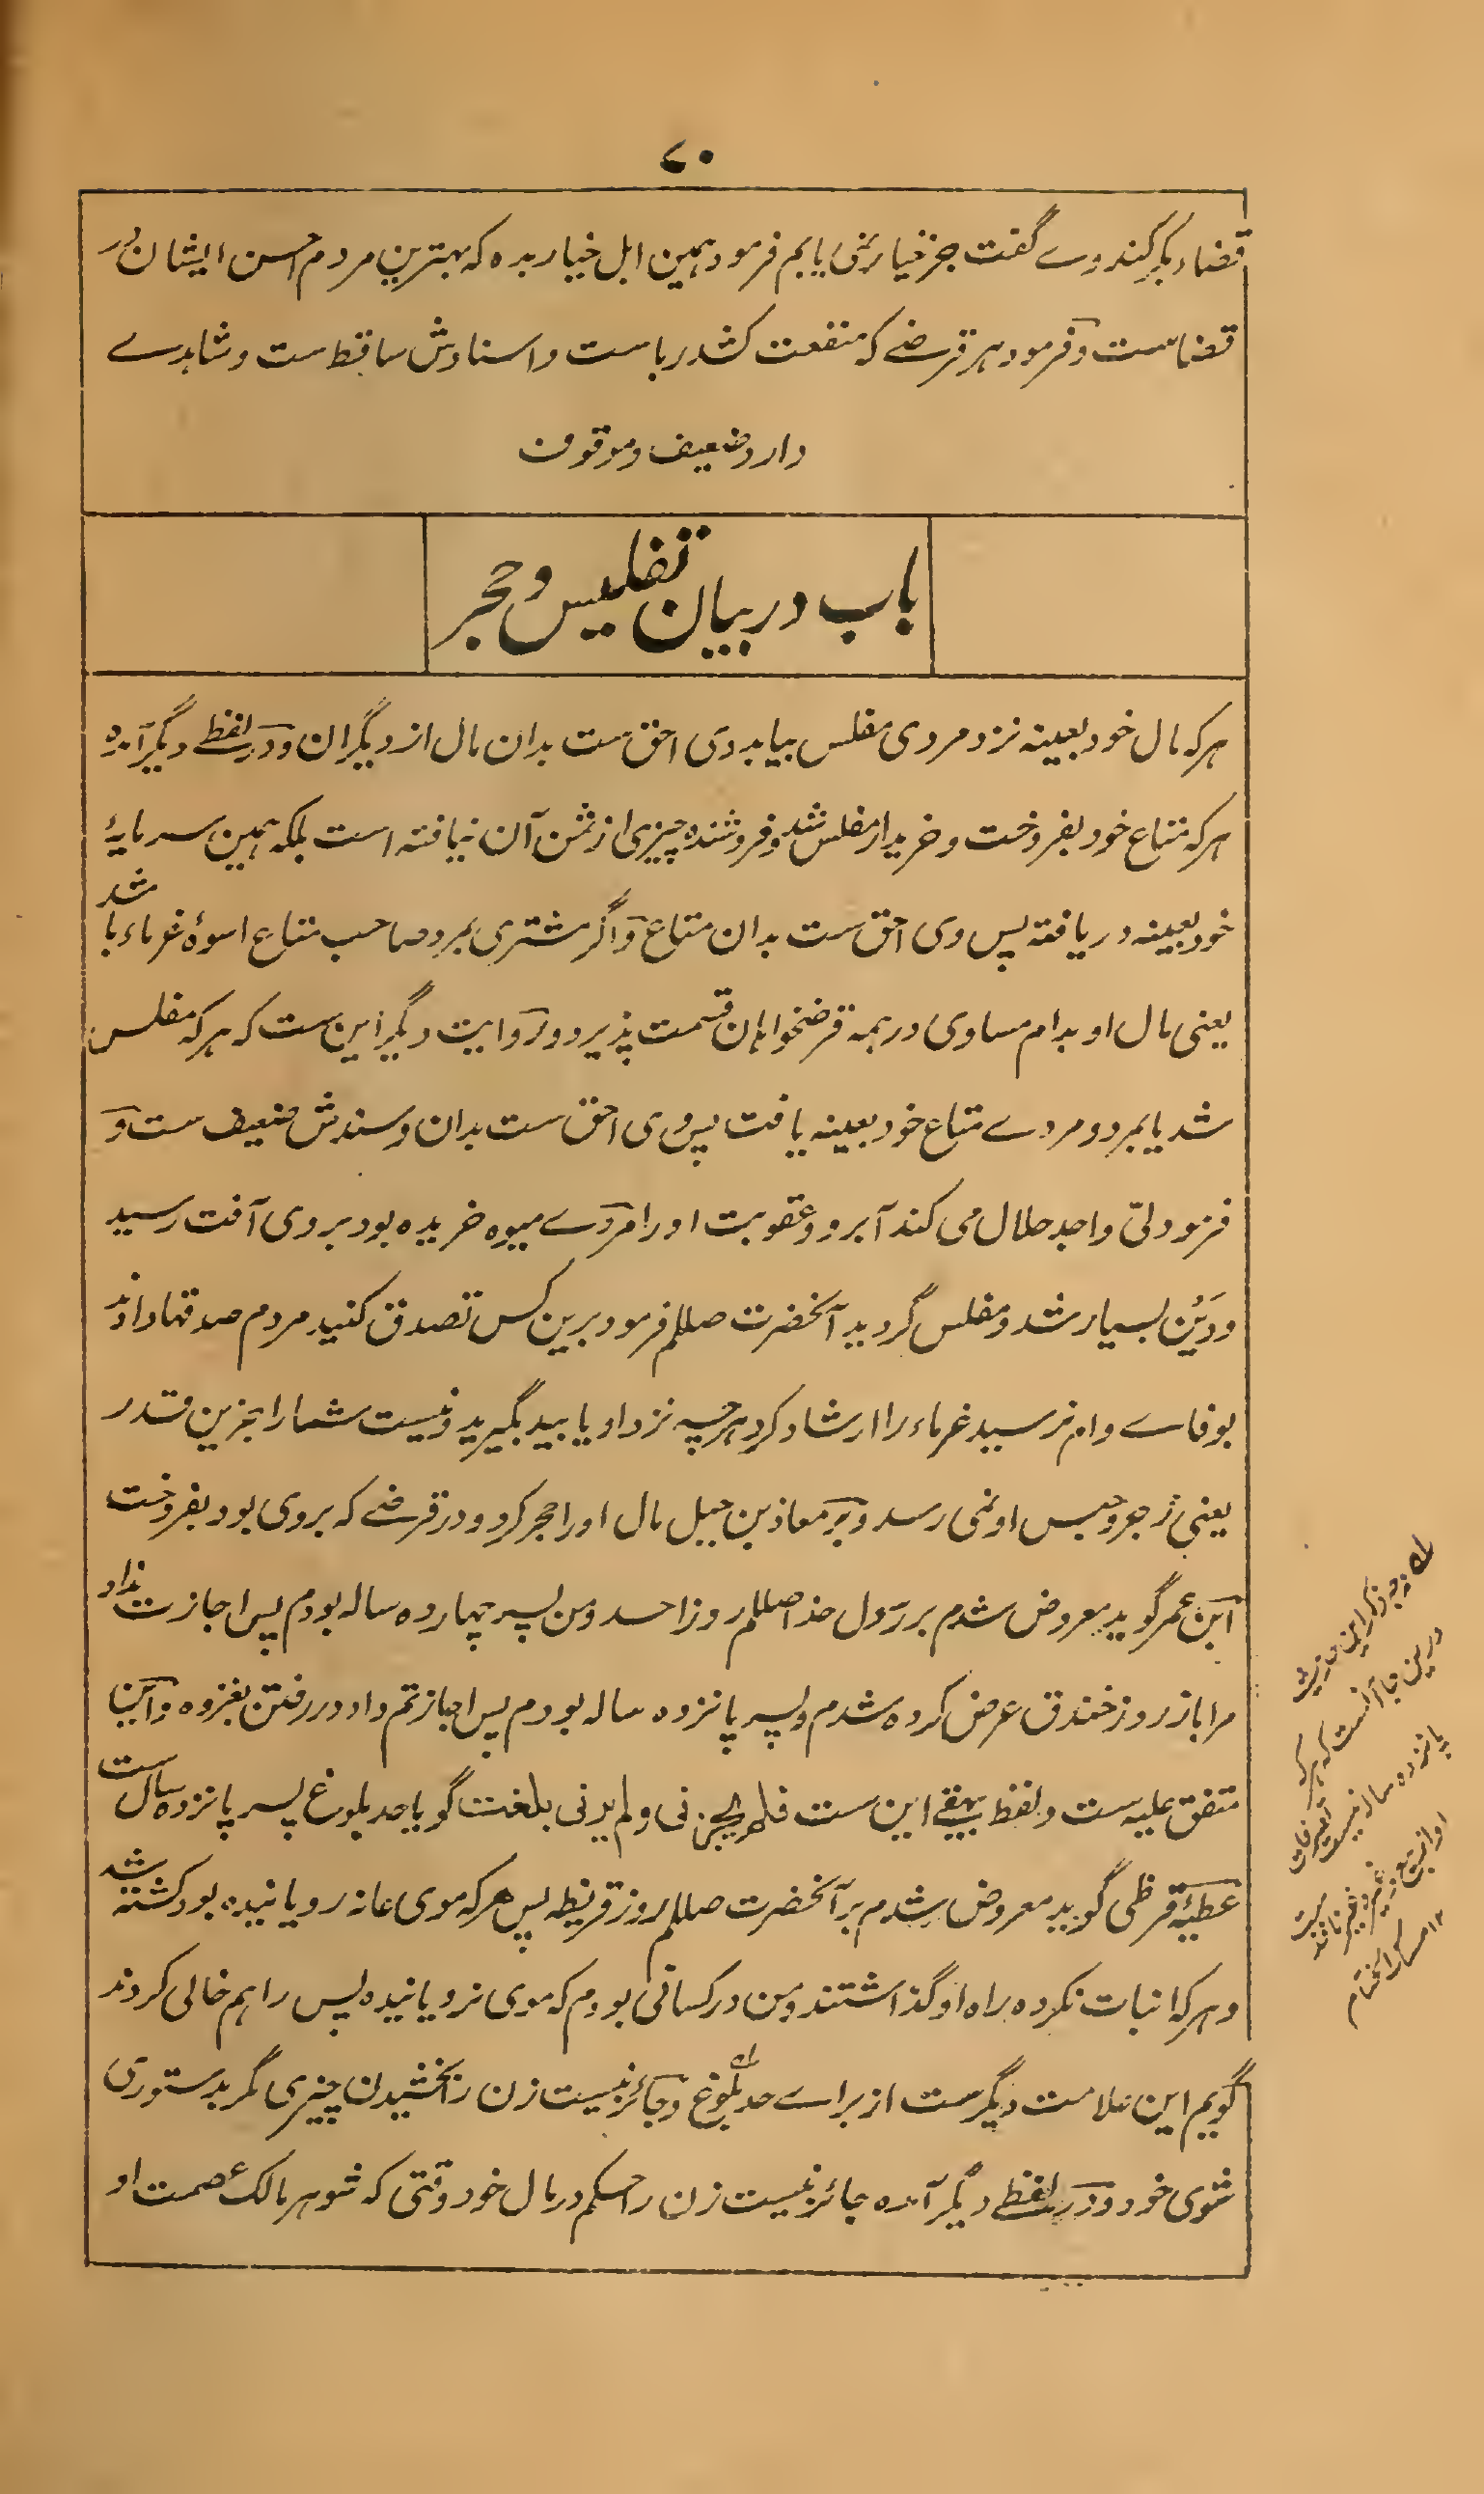 ۷۰
قضاء بکر کند وے گفت جز خیار نمی یابم فرمود همین ابل خیار بده که بهترین مردم احسن ایشان در
قضاست و فرمود هر قرضے که منفعت کشد رباست و اسنادش ساقط ست و شاهدے
دارد ضعیف و موقوف
باب در بیان تفلیس و حجر
هر که مال خود بعینه نزد مردی مفلس بیابد وی احق ست بدان مال از دیگران و در لفظے دیگر آمده
هر که متاع خود بفروخت و خریدار مفلس شد و فروشنده چیزی از ثمن آن نیافته است بلکه همین سرمایۀ
خود بعینه دریافته پس وی احق ست بدان متاع و اگر مشتری بمرد صاحب متاع اسوۀ غرماء باشد
یعنی مال او بدام مساوی در همه قرضخواهان قسمت پذیرد و در روایت دیگر این ست که هر که مفلس
شد یا بمرد و مردے متاع خود بعینه یافت پس وی احق ست بدان و سندش ضعیف ست و
فرمود لیّ واجد حلال می کند آبرو و عقوبت او را مردے میوه خریده بود بروی آفت رسید
و دَیْن بسیار شد و مفلس گردید آنحضرت صللم فرمود برین کس تصدق کنید مردم صدقها دادند
بوفاے وام نرسید غرماء را ارشاد کرد هرچه نزد او یابید بگیرید و نیست شما را بجز این قدر
یعنی زجر و حبس او نمی رسد و بر معاذ بن جبل مال او را حجر کرد و در قرضے که بروی بود بفروخت
ابن عمر گوید معروض شدم بر رسول خدا صللم روز احد و من پسر چهارده ساله بودم پس اجازت نداد
مرا باز روز خندق عرض کرده شدم و پسر پانزده ساله بودم پس اجازتم داد در رفتن بغزوه و این
متفق علیه ست و لفظ بیهقے این ست فلم یجزنی و لم یرنی بلغت گویا حد بلوغ پسر پانزده سال ست
عطیۀ قرظی گوید معروض شدم بر آنحضرت صللم روز قریظه پس هر که موی عانه رویانیده بود کشته شد
و هر که انبات نکرده راه او گذاشتند و من در کسانی بودم که موی نرویانیده پس راهم خالی کردند
گویم این علامت دیگرست از براے حد بلوغ و جائز نیست زن را بخشیدن چیزی مگر بدستوری
شوی خود و در لفظے دیگر آمده جائز نیست زن را حکم در مال خود وقتی که شوهر مالک عصمت او
له وجه ذکر این حدیث
درین جا آنست که هر که
پانزده ساله نیست تصرفات
او از بیع و غیره نافذ نیست
۱۲ مسک الختام